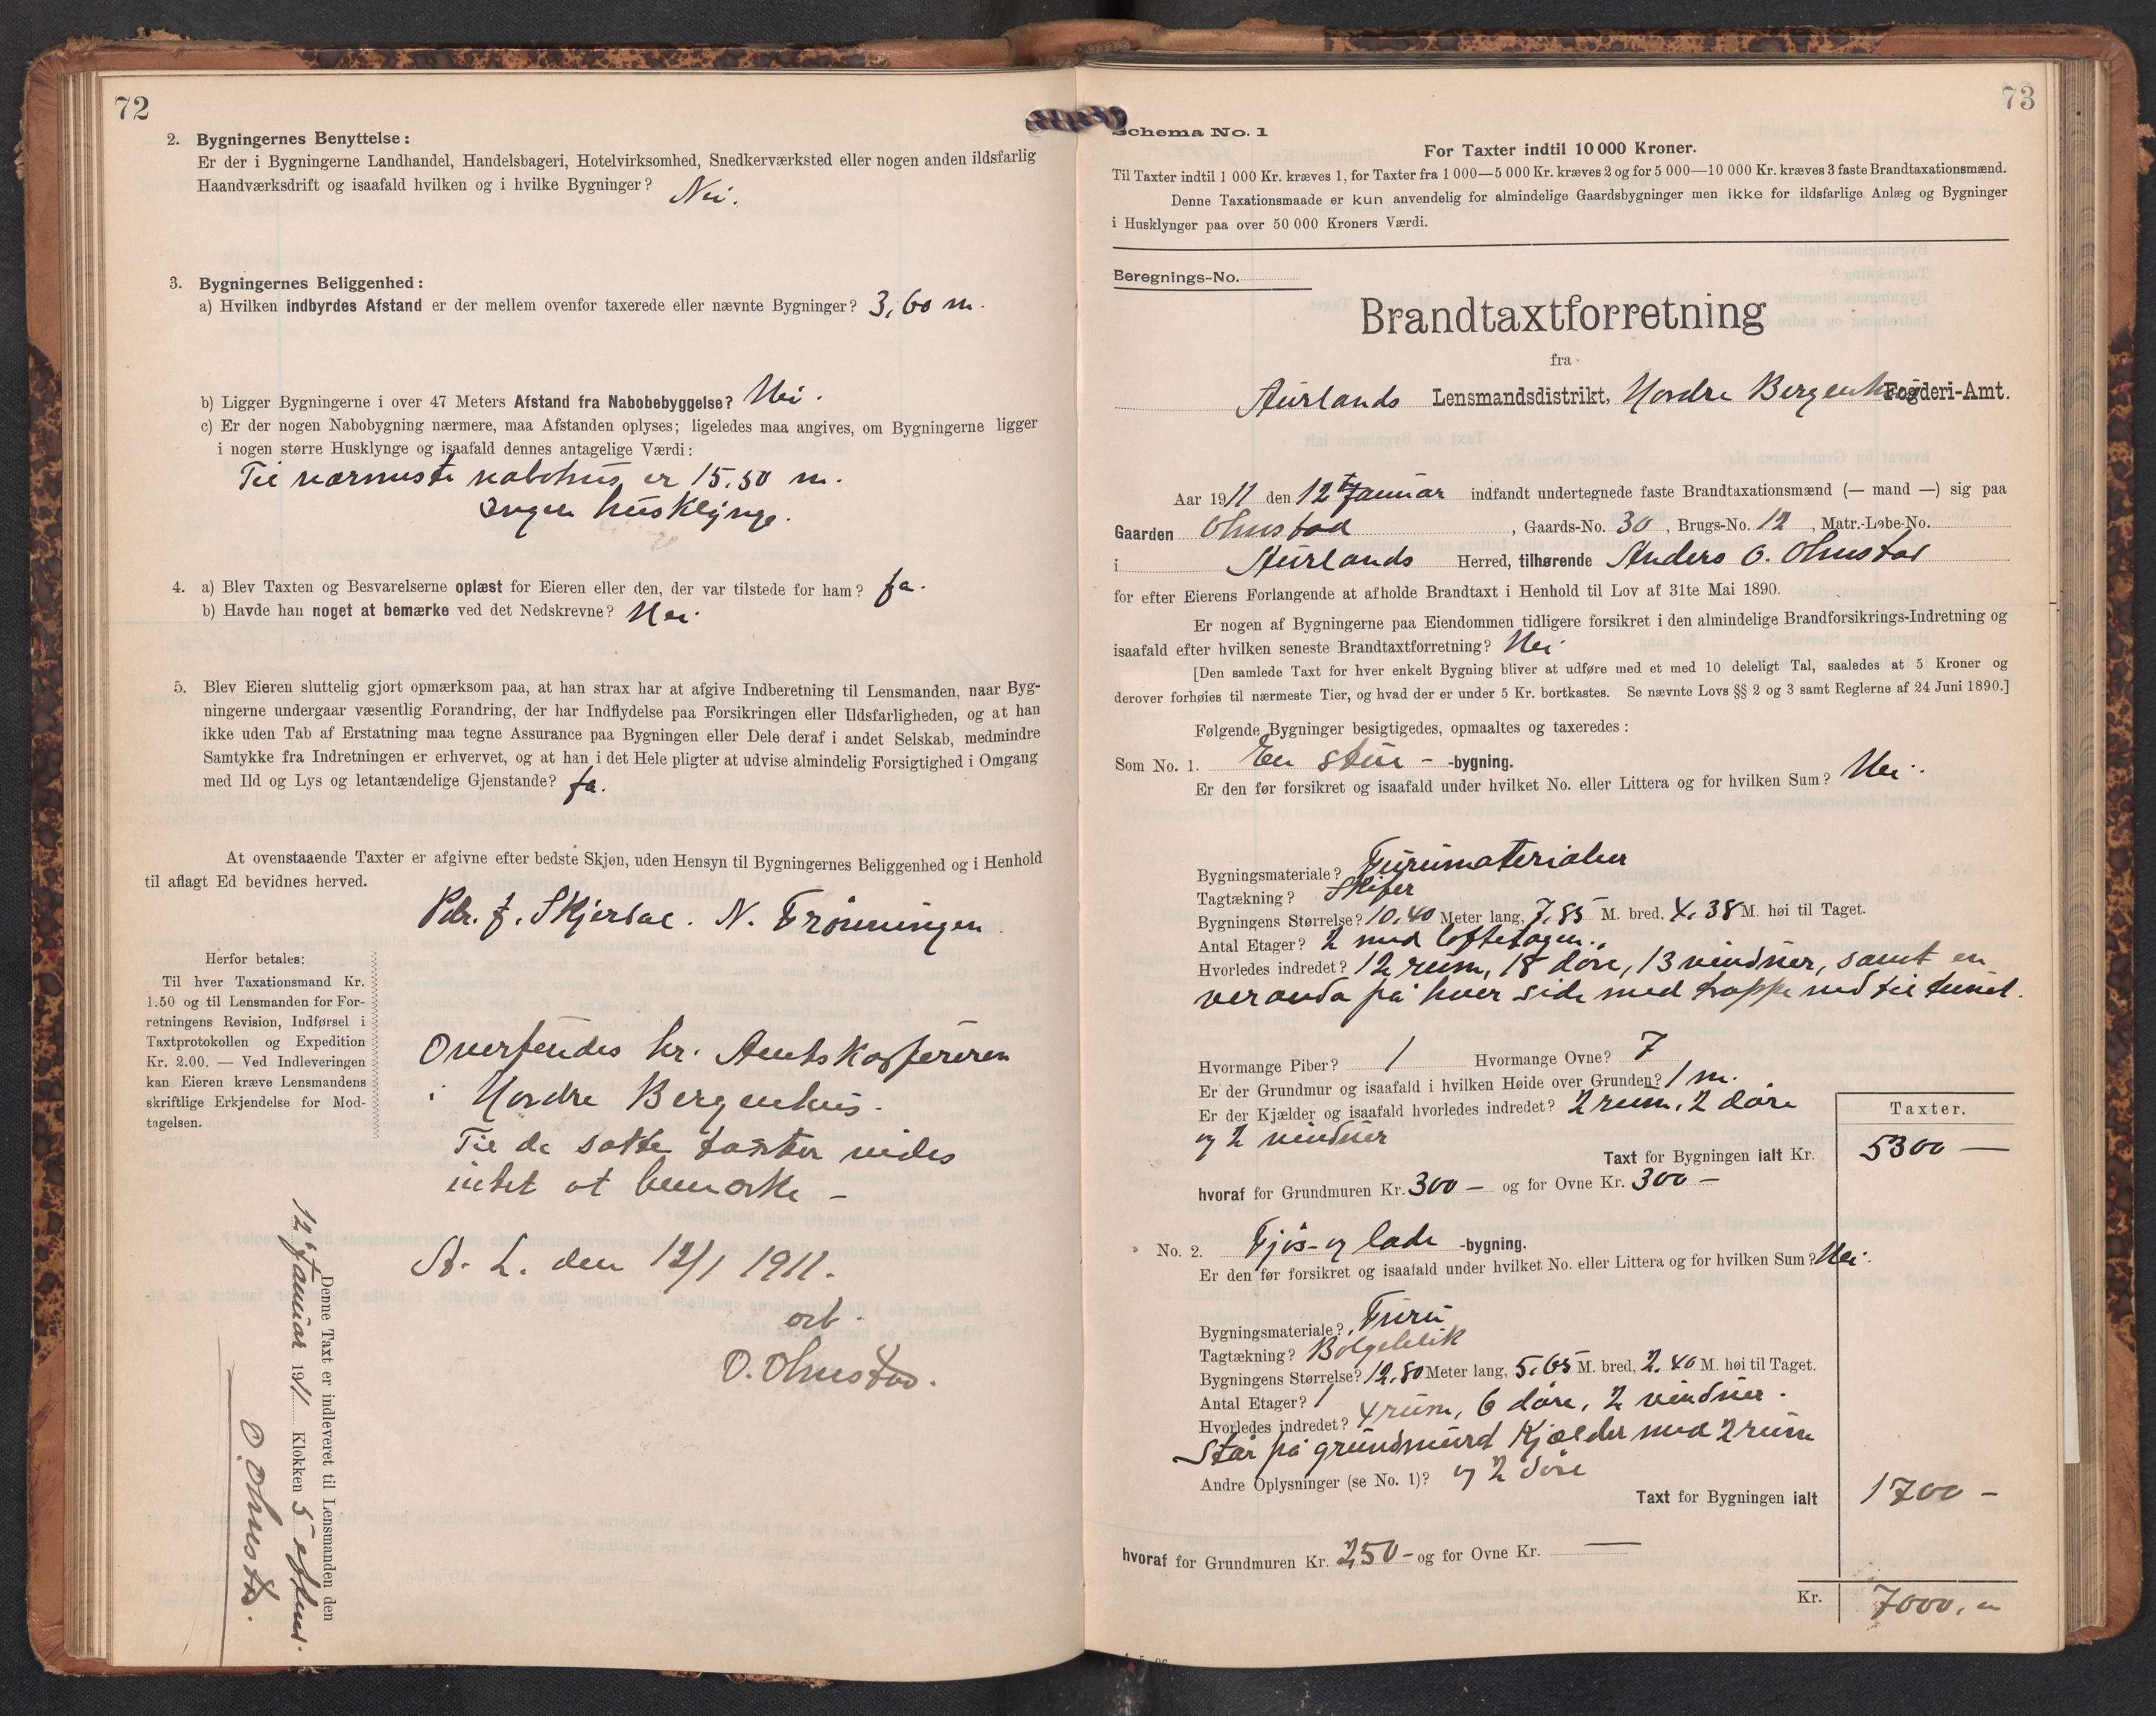 72
2. Bygningernes Benyttelse:
Er der i Bygningerne Landhandel, Handelsbageri, Hotelvirksomhed, Snedkerværksted eller nogen anden ildsfarlig
Haandværksdrift og isaafald hvilken og i hvilke Bygninger? Nei.
3. Bygningernes Beliggenhed:
a) Hvilken indbyrdes Afstand er der mellem ovenfor taxerede eller nævnte Bygninger? 3,60 m.
b) Ligger Bygningerne i over 47 Meters Afstand fra Nabobebyggelse? Nei.
c) Er der nogen Nabobygning nærmere, maa Afstanden oplyses; ligeledes maa angives, om Bygningerne ligger
i nogen større Husklynge og isaafald dennes antagelige Værdi:
Til nærmeste nabohus er 15.50 m.
Ingen husklynge.
4. a) Blev Taxten og Besvarelserne oplæst for Eieren eller den, der var tilstede for ham? Ja.
b) Havde han noget at bemærke ved det Nedskrevne? Nei.
5. Blev Eieren sluttelig gjort opmærksom paa, at han strax har at afgive Indberetning til Lensmanden, naar Byg-
ningerne undergaar væsentlig Forandring, der har Indflydelse paa Forsikringen eller Ildsfarligheden, og at han
ikke uden Tab af Erstatning maa tegne Assurance paa Bygningen eller Dele deraf i andet Selskab, medmindre
Samtykke fra Indretningen er erhvervet, og at han i det Hele pligter at udvise almindelig Forsigtighed i Omgang
med Ild og Lys og letantændelige Gjenstande? Ja.
At ovenstaaende Taxter er afgivne efter bedste Skjøn, uden Hensyn til Bygningernes Beliggenhed og i Henhold
til aflagt Ed bevidnes herved.
Pdr. J. Skjerdal. N. Frønningen
Herfor betales:
Til hver Taxationsmand Kr.
1.50 og til Lensmanden for For-
retningens Revision, Indførsel i
Taxtprotokollen og Expedition
Kr. 2.00. — Ved Indleveringen
kan Eieren kræve Lensmandens
skriftlige Erkjendelse for Mod-
tagelsen.
Oversendes hr. Amtskassereren
i Nordre Bergenhus.
Til de satte taxter vides
intet at bemærke -
A. L. den 12/1 1911.
arb.
O. Ohnstad.
Denne Taxt er indleveret til Lensmanden den
12 Januar 1911 Klokken 5 efterm.
O. Ohnstad.
73
Schema No. 1
For Taxter indtil 10 000 Kroner.
Til Taxter indtil 1 000 Kr. kræves 1, for Taxter fra 1 000—5 000 Kr. kræves 2 og for 5 000—10 000 Kr. kræves 3 faste Brandtaxationsmænd.
Denne Taxationsmaade er kun anvendelig for almindelige Gaardsbygninger men ikke for ildsfarlige Anlæg og Bygninger
i Husklynger paa over 50 000 Kroners Værdi.
Beregnings-No.
Brandtaxtforretning
fra
Aurlands Lensmandsdistrikt, Nordre Bergenhus Fogderi-Amt.
Aar 1911 den 12 Januar indfandt undertegnede faste Brandtaxationsmænd (— mand —) sig paa
Gaarden Ohnstad, Gaards-No. 30, Brugs-No. 12, Matr.-Løbe-No.
i Aurlands Herred, tilhørende Anders O. Ohnstad
for efter Eierens Forlangende at afholde Brandtaxt i Henhold til Lov af 31te Mai 1890.
Er nogen af Bygningerne paa Eiendommen tidligere forsikret i den almindelige Brandforsikrings-Indretning og
isaafald efter hvilken seneste Brandtaxtforretning? Nei.
[Den samlede Taxt for hver enkelt Bygning bliver at udføre med et med 10 deleligt Tal, saaledes at 5 Kroner og
derover forhøies til nærmeste Tier, og hvad der er under 5 Kr. bortkastes. Se nævnte Lovs §§ 2 og 3 samt Reglerne af 24 Juni 1890.]
Følgende Bygninger besigtigedes, opmaaltes og taxeredes:
Som No. 1. En stue - -bygning.
Er den før forsikret og isaafald under hvilket No. eller Littera og for hvilken Sum? Nei.
Bygningsmateriale? Furumaterialer
Tagtækning? Skifer
Bygningens Størrelse? 10,40 Meter lang, 7,85 M. bred, 4.38 M. høi til Taget.
Antal Etager? 2 med loftetagen.
Hvorledes indredet? 12 rum, 18 døre, 13 vinduer, samt en
veranda på hver side med trappe ned til tunet.
Hvormange Piber? 1 Hvormange Ovne? 7
Er der Grundmur og isaafald i hvilken Høide over Grunden? 1 m.
Er der Kjælder og isaafald hvorledes indredet? 2 rum, 2 døre
og 2 vinduer
Taxter.
Taxt for Bygningen ialt Kr. 5300 —
hvoraf for Grundmuren Kr. 300 — og for Ovne Kr. 300 —
No. 2. Fjøs- og lade -bygning.
Er den før forsikret og isaafald under hvilket No. eller Littera og for hvilken Sum? Nei.
Bygningsmateriale? Furu
Tagtækning? Bølgeblik
Bygningens Størrelse? 12,80 Meter lang, 5,65 M. bred, 2.40 M. høi til Taget.
Antal Etager? 1
Hvorledes indredet? 4 rum, 6 døre, 2 vinduer.
Står på grundmurd Kjælder med 2 rum
Andre Oplysninger (se No. 1)? og 2 døre
Taxt for Bygningen ialt 1700 -
hvoraf for Grundmuren Kr. 250 - og for Ovne Kr. —
Kr. 7000,